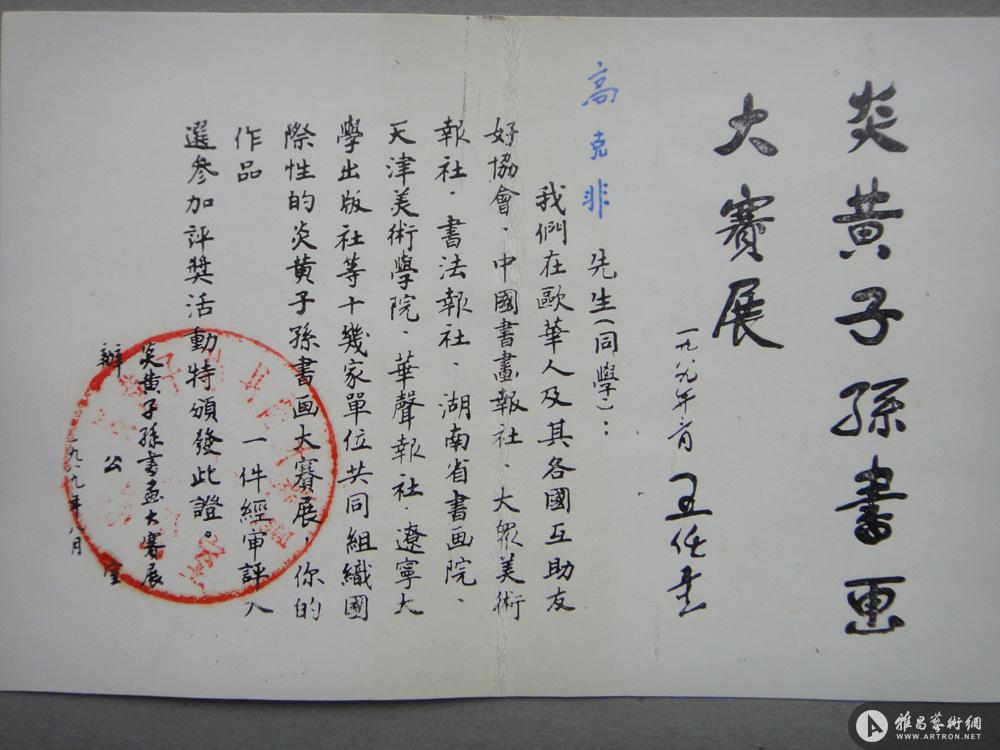 炎黄子孫書画
大賽展
一九八九年六月 王任重
高克非 先生(同學):
我們在歐華人及其各國互助友
好協會、中國書畫報社、大衆美術
報社、書法報社、湖南省書画院、
天津美術學院、華聲報社、遼寧大
學出版社等十幾家單位共同組織國
際性的炎黄子孫書画大賽展，你的
作品 一件經審評入
選参加評奬活動特頒發此證。
炎黄子孫書画大賽展
辦公室
一九八九年八月
雅昌藝術網
WWW.ARTRON.NET